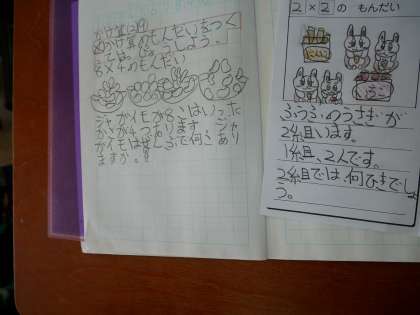 かけ算(29)
かけ算のもんだいをつく
って、はっぴょうしよう。
8×4のもんだい
ジャガイモが8こはいった
ふくろが4つあります。ジャ
がイモはぜんぶで何こあり
ますか。
2×2の もんだい
ふうふのうさぎが
2組います。
1組、2人です。
2組では、何びきでしょ
う。